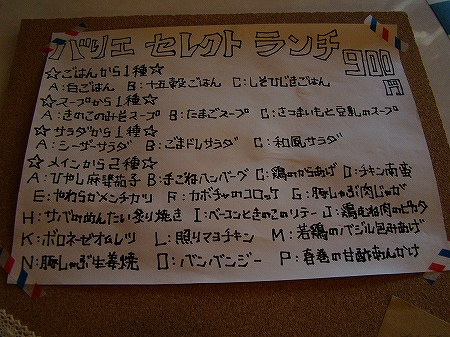 バリエ セレクト ランチ 900円
☆ごはんから1種☆
A:白ごはん B:十五穀ごはん C:しそひじきごはん
☆スープから1種☆
A:きのこのみそスープ B:たまごスープ C:さつまいもと豆乳のスープ
☆サラダから1種☆
A:シーザーサラダ B:ごまドレサラダ C:和風サラダ
☆メインから2種☆
A:ひやし麻婆茄子 B:手ごねハンバーグ C:鶏のからあげ D:チキン南蛮
E:やわらかメンチカツ F:カボチャのコロッケ G:豚しゃぶ肉じゃが
H:サバのめんたい炙り焼き I:ベーコンときのこのソテー J:鶏むね肉のピカタ
K:ボロネーゼオムレツ L:照りマヨチキン M:若鶏のバジル包みあげ
N:豚しゃぶ生姜焼 O:バンバンジー P:春巻の甘酢あんかけ